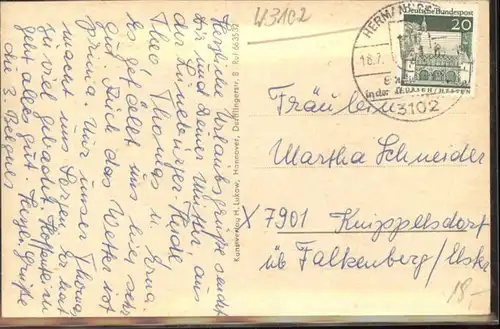 43102
Herzliche Urlaubsgrüße sendt
Dir und Deiner Mutter, aus
der Lüneburger Heide
Theo Thomas u. Erna.
Es gefällt uns hie, sehr
gut. Auch das Wetter ist
prima. Nur unser Thomas
macht uns Sorgen. Er hat
zu viel gebadet. Hoffentlich
geht alles gut. Herzl. Grüße
die 3
Kunstverlag H. Lukow, Hannover, Derfflingerstr. 8 Ruf 663532
HERMANNSBURG
18.7.
in der
3102
Deutsche Bundespost
20
LORSCH/HESSEN
Fräulein
Martha Schneider
X 7901 Knippelsdorf
üb Falkenberg/Elster
18.-